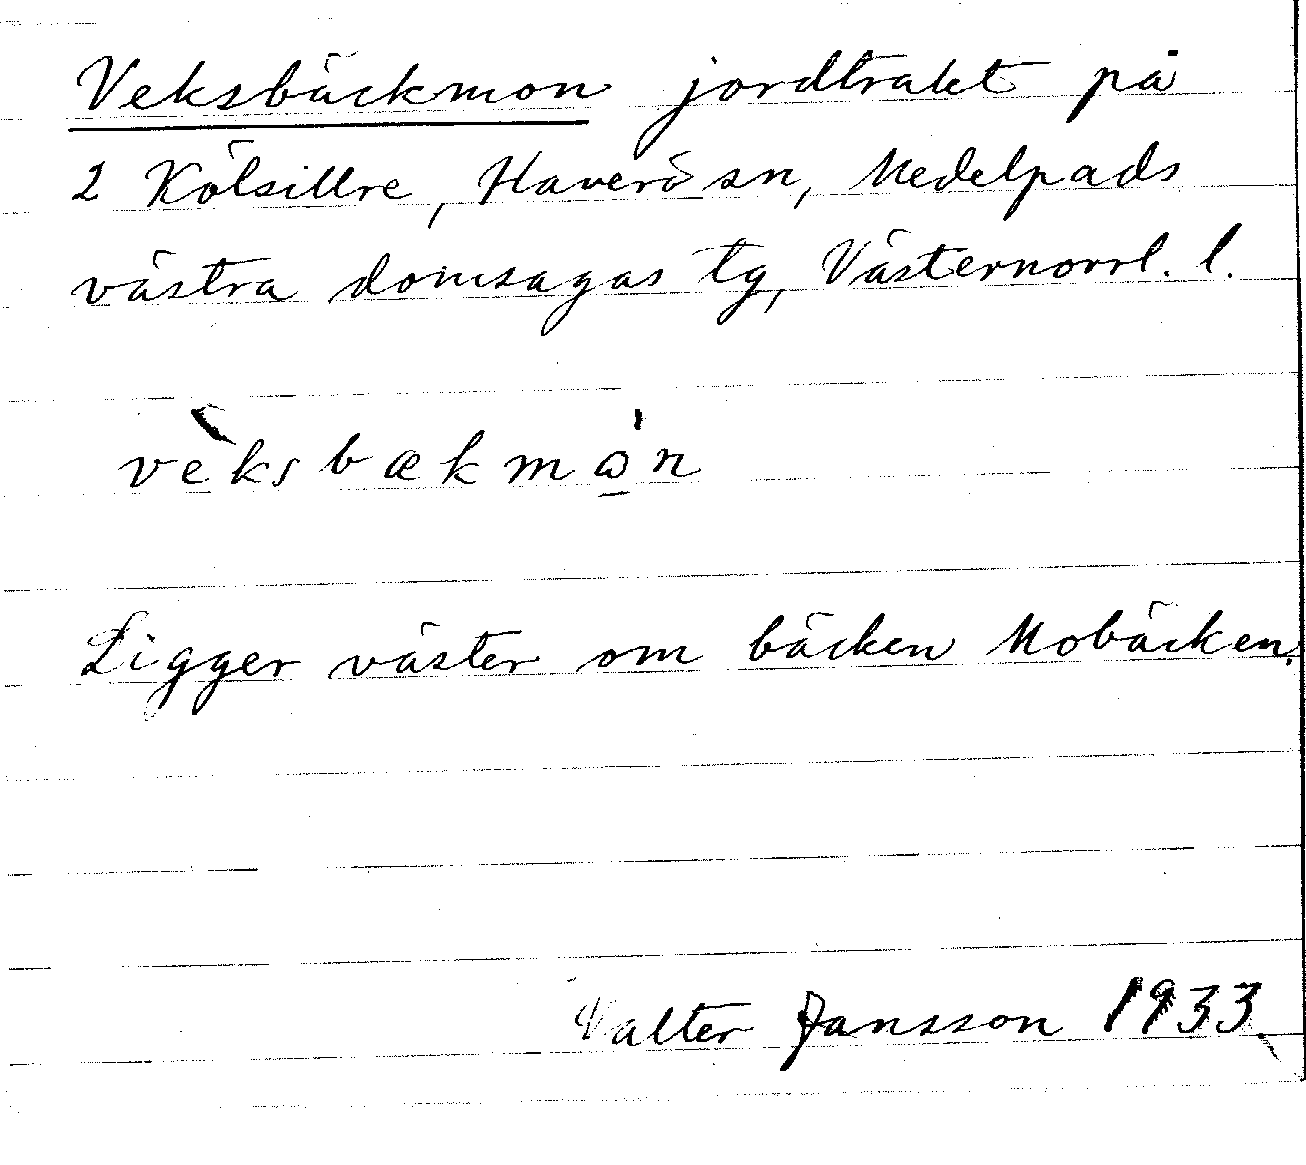 Veksbäckmon jordtrakt på
2 Kölsillre, Haverö sn, Medelpads
västra domsagas tg, Västernorrl. l.
vèksbækmɷ̠̀n
Ligger väster om bäcken Mobäcken.
Valter Jansson 1933.